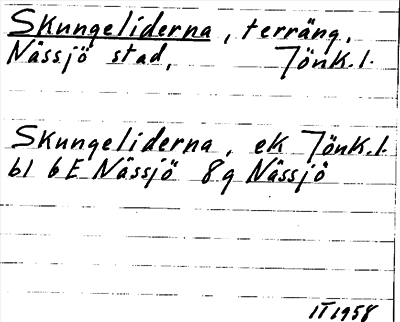 Skungeliderna, terräng,
Nässjö stad, Jönk.l.
Skungeliderna, ek Jönk.l.
bl 6E Nässjö 8g Nässjö
II 1958